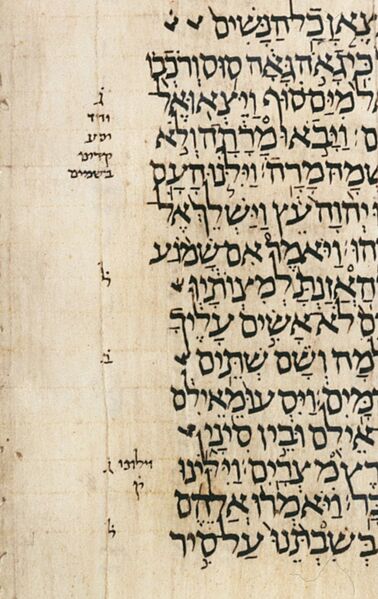 צאן כל הנשים
כי גאה גאה סוס ורכבו
אל מים סוף ויצאו אל
ם ויבאו מרתה ולא
שמה מרה וילנו העם
ו יהוה עץ וישלך אל
הו ויאמר אם שמוע
האזנת למצותיו
ם לא אשים עליך
למה ושם שתים
מים ויסעו מאילם
אילם ובין סיני
רץ מצרים וילינו
בר ויאמרו אלהם
בשבתנו על סיר
ג
בשמים
ל
ב
וילונו ג
ק
ל